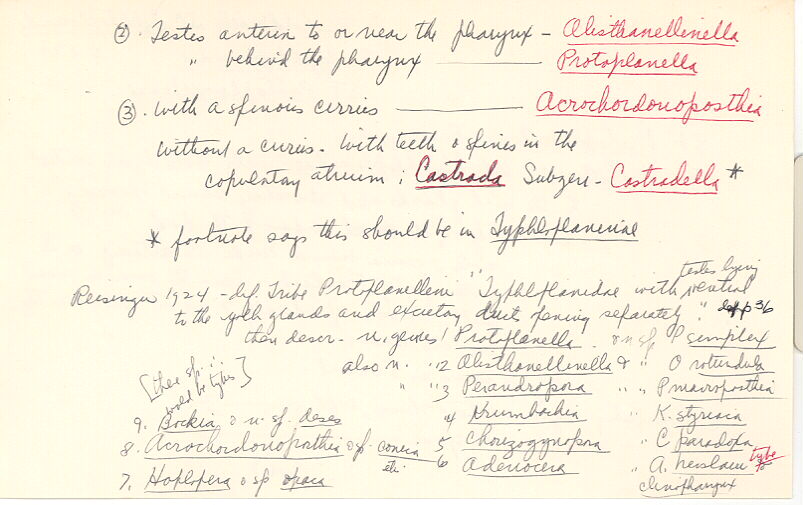 ② . Testes anterior to or near the pharynx - Olisthanellinella
" behind the pharynx — Protoplanella
③ . with a spinous cirrus — Acrochordonoposthia
without a cirrus. With teeth o spines in the
copulatory atrium ; Castrada Subgen - Castradella *
* footnote says this should be in Typhloplaninae
Reisinger 1924 - def. Tribe Protoplanellini "Typhloplanidae with testes lying ventral
to the yolk glands and excretory duct opening separately." p 36
then descr - n. genus 1 Protoplanella o n sp P simplex
also n. " 2 Olisthanellinella & " O rotundula
" " 3 Perandropora " " P macroposthia
4 Krumbachia " K. styriaca
5 Chorizogynopora " C paradoxa
6 Adenocerca " A.
[these sp. :. would be types]
9. Bockia o n. sp. deses
8. Acrochordonoposthia o sp. conica
7. Hoplopera o sp opaca
type